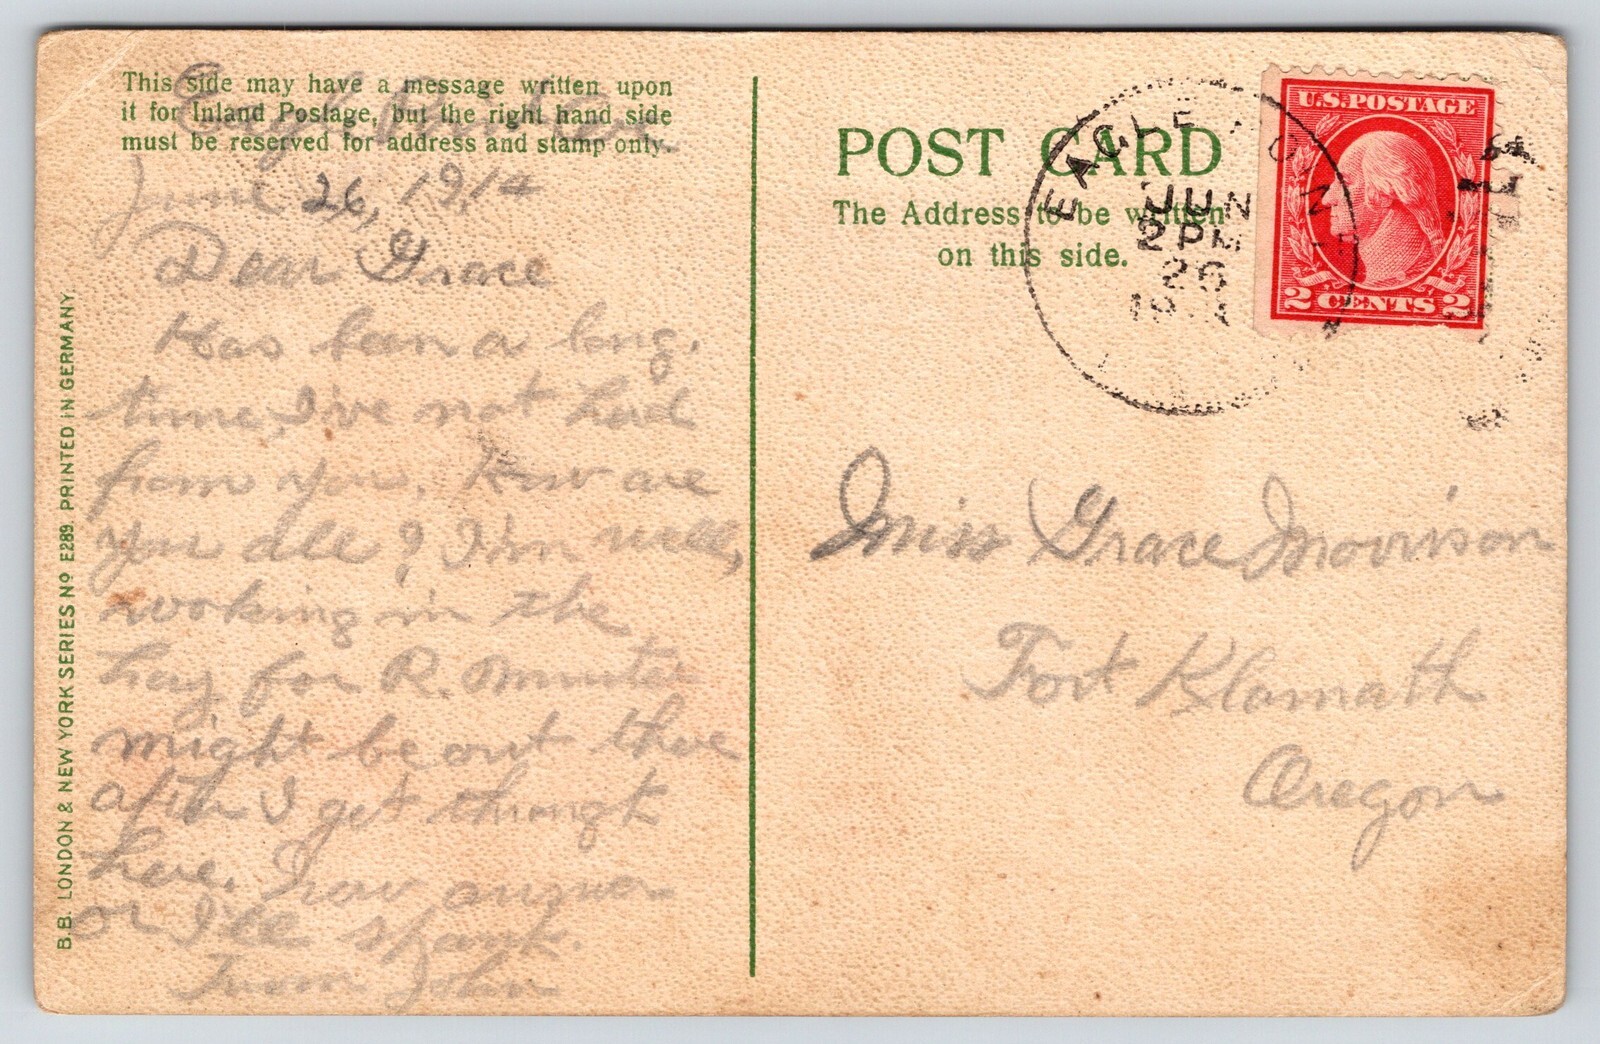 This side may have a message written upon
it for Inland Postage, but the right hand side
must be reserved for address and stamp only.
June 26, 1914
Dear Grace
Has been a long,
time, I've not herd
from you, How are
you all? I'm well,
working in the
hay for R.
might be out thare
after I get through
here. Now answer
or I'll spank.
From John
B.B. LONDON & NEW YORK SERIES No E289. PRINTED IN GERMANY
POST CARD
The Address to be written
on this side.
EAGLE
JUN
2 PM
26
U.S. POSTAGE
2 CENTS 2
Miss Grace Morrison
Fort Klamath
Oregon